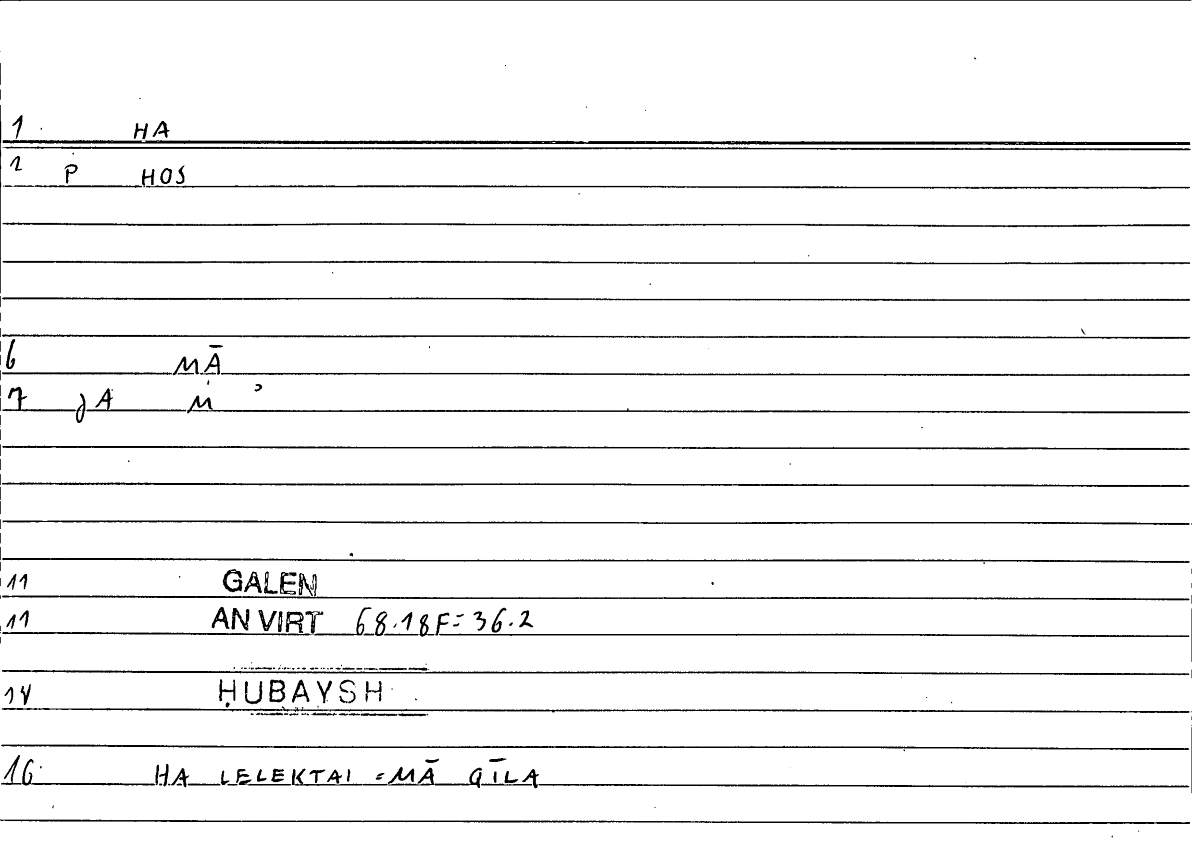 1 HA
2 P HOS
6 MĀ
7 JA M ʾ
11 GALEN
11 AN VIRT 68.18F=36.2
14 ḤUBAYSH
16 HA LELEKTAI = MĀ QĪLA